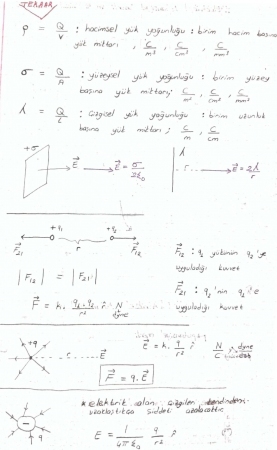 TEKRAR
ρ = Q/V : hacimsel yük yoğunluğu : birim hacim başına
yük miktarı , C/m³ , C/cm³ , C/mm³
σ = Q/A : yüzeysel yük yoğunluğu : birim yüzey
başına yük miktarı; C/m² , C/cm² , C/mm²
λ = Q/L : Çizgisel yük yoğunluğu : birim uzunluk
başına yük miktarı ; C/m , C/cm
+σ
E⃗ E⃗ = σ/2ε₀
λ
r E⃗ = 2λ/r
+q₁ q₂
F⃗₂₁ r F⃗₁₂
F⃗₁₂ : q₁ yükünün q₂'ye
uyguladığı kuvvet
|F₁₂| = |F₂₁|
F⃗₂₁ : q₂'nin q₁'e
uyguladığı kuvvet
F⃗ = k. q₁.q₂/r² r̂ N dyne
+q
r E⃗
E⃗ = k. q/r² r̂ N/C dyne
F⃗ = q.E⃗
* elektrik alan çizgileri
uzaklaştıkça şiddeti azalacaktır
q
E = 1/4πε₀ q/r² r̂